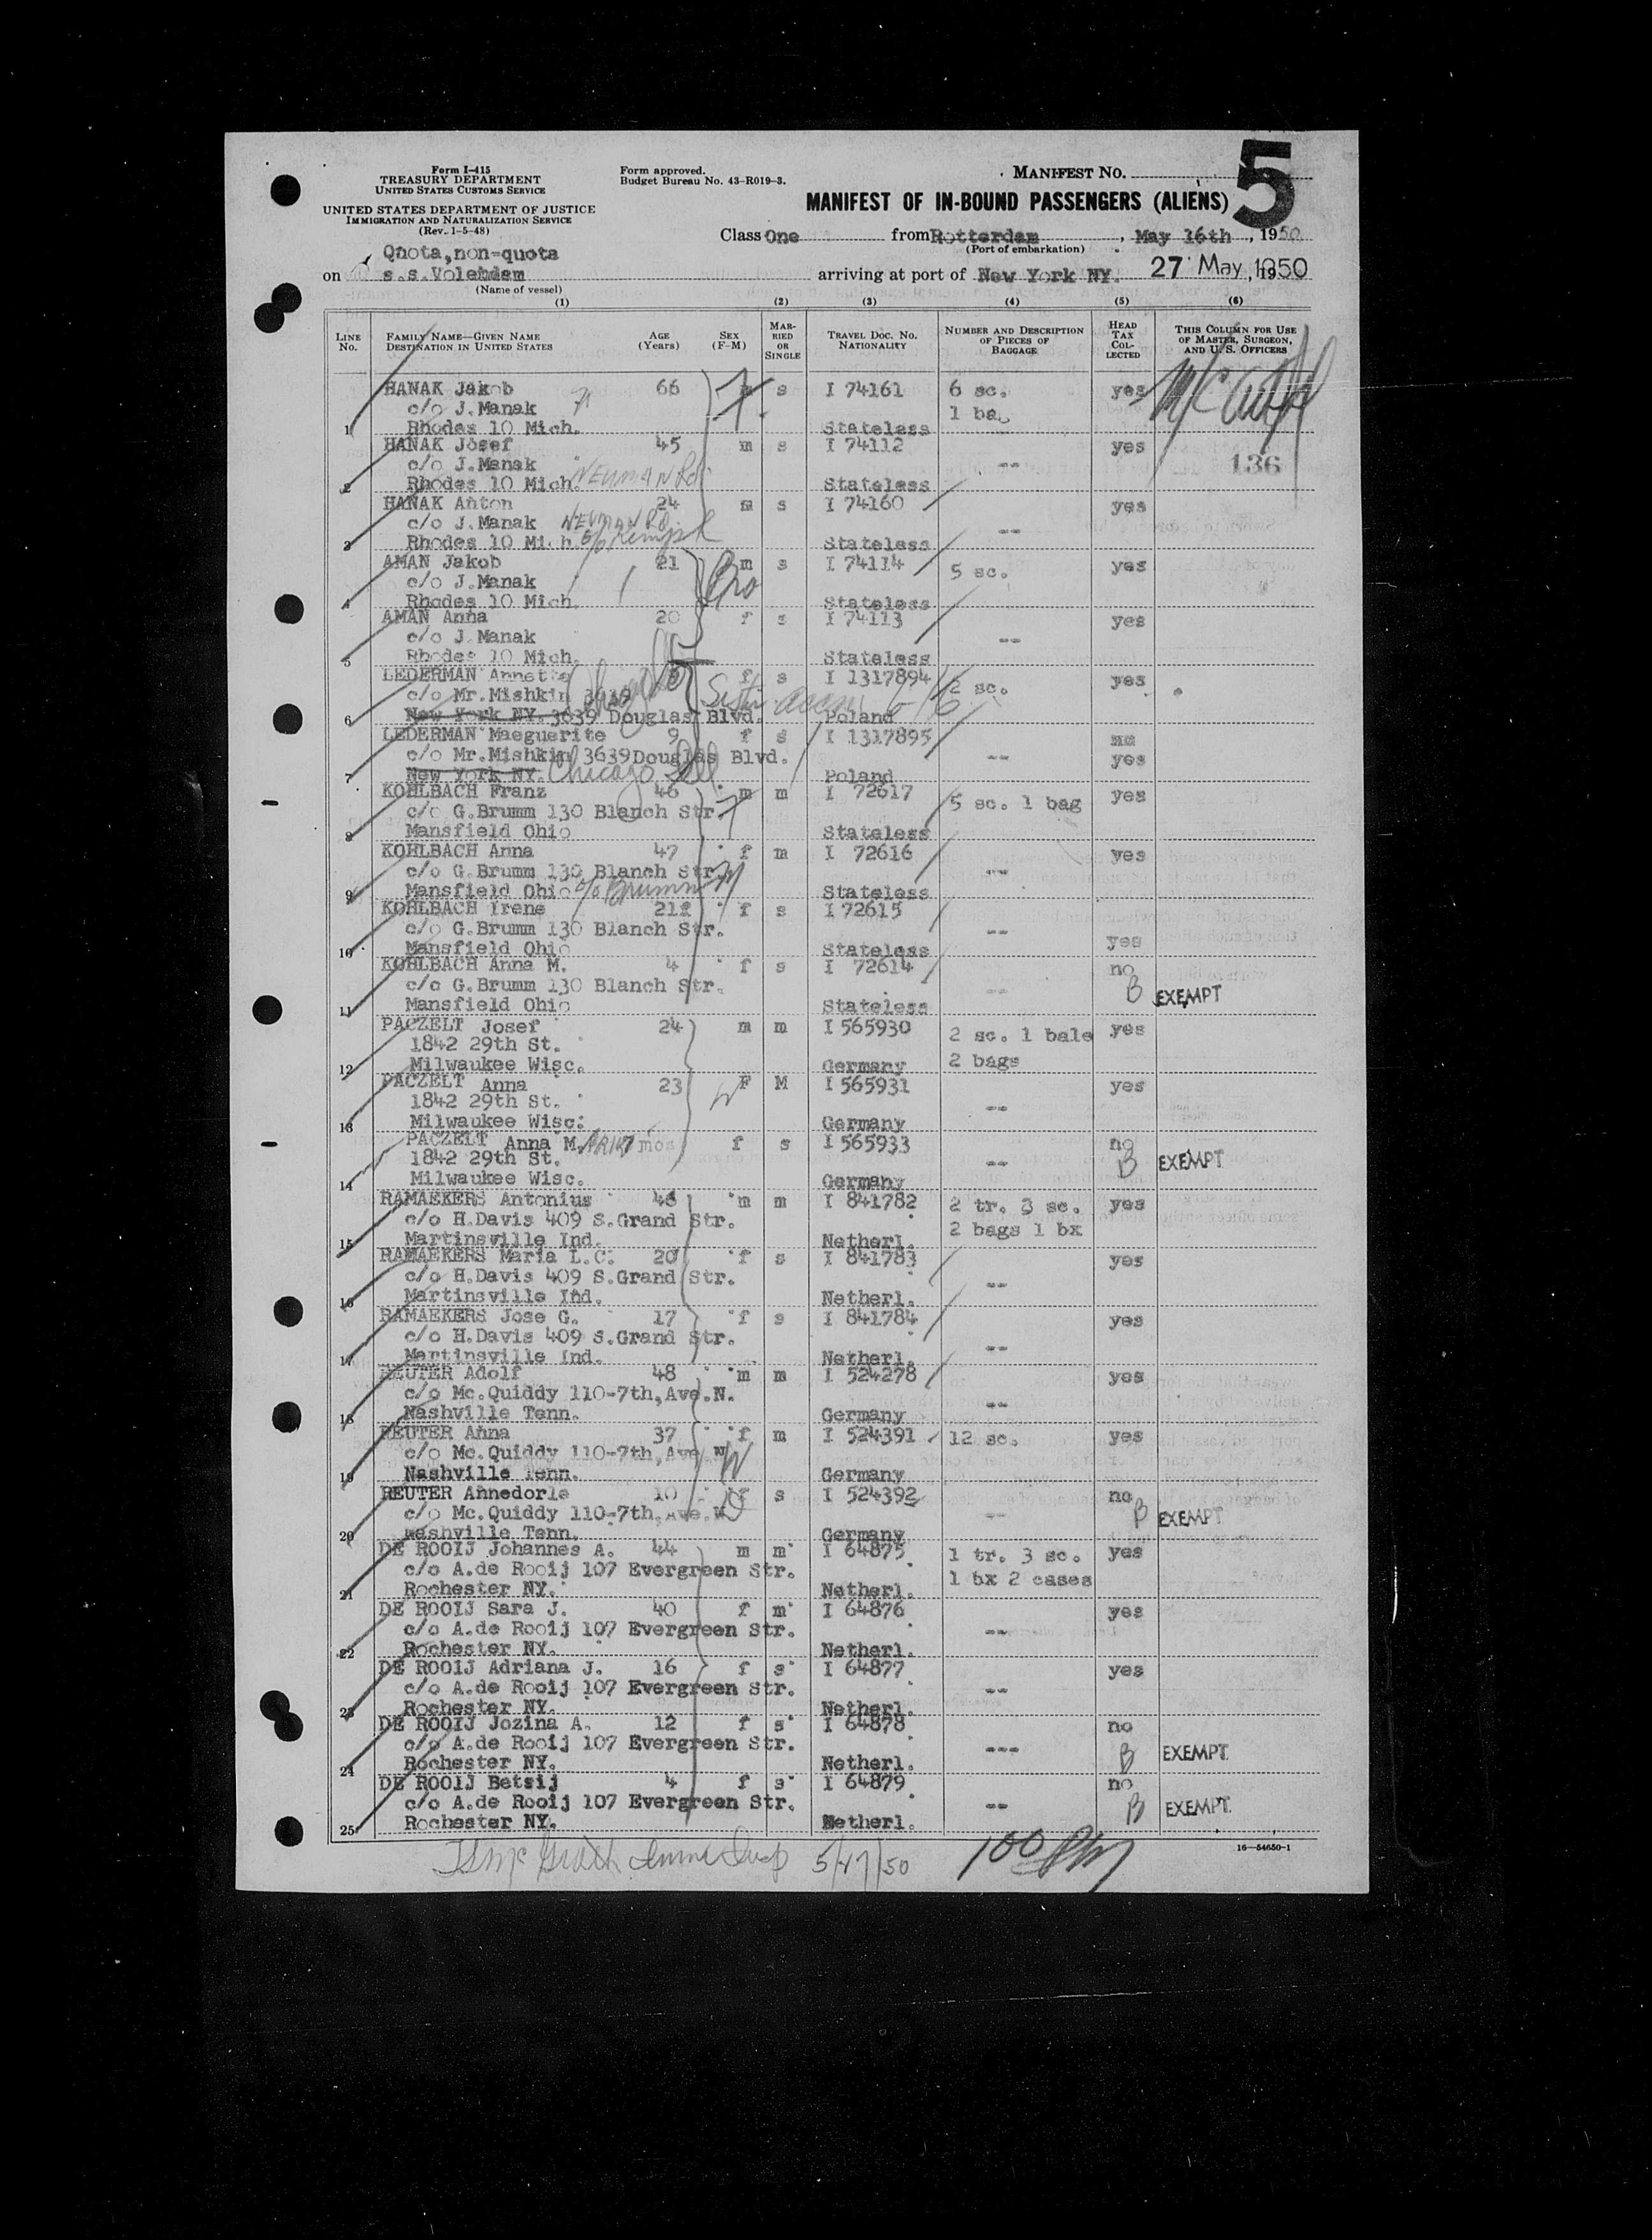 Form I-415
TREASURY DEPARTMENT
UNITED STATES CUSTOMS SERVICE
UNITED STATES DEPARTMENT OF JUSTICE
IMMIGRATION AND NATURALIZATION SERVICE
(Rev. 1-5-48)
Form approved.
Budget Bureau No. 43-R019-3.
MANIFEST No.
5
MANIFEST OF IN-BOUND PASSENGERS (ALIENS)
Class One from Rotterdam, May 16th, 1950
(Port of embarkation)
Qnota,non-quota
on s.s.Volendam arriving at port of New York NY. 27 May, 1950
(Name of vessel)
(1) (2) (3) (4) (5) (6)
LINE No. FAMILY NAME—GIVEN NAME DESTINATION IN UNITED STATES AGE (Years) SEX (F-M) MARRIED OR SINGLE TRAVEL DOC. NO. NATIONALITY NUMBER AND DESCRIPTION OF PIECES OF BAGGAGE HEAD TAX COLLECTED THIS COLUMN FOR USE OF MASTER, SURGEON, AND U. S. OFFICERS
HANAK Jakob 66 m s I 74161 6 sc. yes
c/o J.Manak 1 bag
1 Rhodes 10 Mich. Stateless
HANAK Josef 45 m s I 74112 yes
c/o J.Manak -- 136
2 Rhodes 10 Mich. NEUMAN Rd. Stateless
HANAK Anton 24 m s I 74160 yes
c/o J.Manak NEUMAN RD. --
3 Rhodes 10 Mich. Stateless
AMAN Jakob 21 m s I 74114 5 sc. yes
c/o J.Manak
4 Rhodes 10 Mich. Stateless
AMAN Anna 20 f s I 74113 yes
c/o J.Manak --
5 Rhodes 10 Mich. Stateless
LEDERMAN Annette f s I 1317894 2 sc. yes
c/o Mr.Mishkin 3639
6 New York NY. 3639 Douglas Blvd. Poland
LEDERMAN Maeguerite 9 f s I 1317895 no
c/o Mr.Mishkin 3639Douglas Blvd. -- yes
7 New York NY. Chicago Ill Poland
KOHLBACH Franz 46 m m I 72617 5 sc. 1 bag yes
c/o G.Brumm 130 Blanch Str.
8 Mansfield Ohio Stateless
KOHLBACH Anna 47 f m I 72616 yes
c/o G.Brumm 130 Blanch Str. --
9 Mansfield Ohio c/o Brumm Stateless
KOHLBACH Irene 21f f s I 72615
c/o G.Brumm 130 Blanch Str. --
10 Mansfield Ohio Stateless yes
KOHLBACH Anna M. 4 f s I 72614 no
c/o G.Brumm 130 Blanch Str. -- B EXEMPT
11 Mansfield Ohio Stateless
PACZELT Josef 24 m m I 565930 2 sc. 1 bale yes
1842 29th St. 2 bags
12 Milwaukee Wisc. Germany
PACZELT Anna 23 F M I 565931 yes
1842 29th St. --
13 Milwaukee Wisc. Germany
PACZELT Anna M. 7 mos f s I 565933 no
1842 29th St. -- B EXEMPT
14 Milwaukee Wisc. Germany
RAMAEKERS Antonius 46 m m I 841782 2 tr. 3 sc. yes
c/o H.Davis 409 S.Grand Str. 2 bags 1 bx
15 Martinsville Ind. Netherl.
RAMAEKERS Maria L.C. 20 f s I 841783 yes
c/o H.Davis 409 S.Grand Str. --
16 Martinsville Ind. Netherl.
RAMAEKERS Jose G. 17 f s I 841784 yes
c/o H.Davis 409 S.Grand Str. --
17 Martinsville Ind. Netherl.
REUTER Adolf 48 m m I 524278 yes
c/o Mc.Quiddy 110-7th,Ave.N. --
18 Nashville Tenn. Germany
REUTER Anna 37 f m I 524391 12 sc. yes
c/o Mc.Quiddy 110-7th,Ave.N
19 Nashville Tenn. Germany
REUTER Annedorle 10 f s I 524392 no
c/o Mc.Quiddy 110-7th,Ave. -- B EXEMPT
20 Nashville Tenn. Germany
DE ROOIJ Johannes A. 44 m m I 64875 1 tr. 3 sc. yes
c/o A.de Rooij 107 Evergreen Str. 1 bx 2 cases
21 Rochester NY. Netherl.
DE ROOIJ Sara J. 40 f m I 64876 yes
c/o A.de Rooij 107 Evergreen Str. --
22 Rochester NY. Netherl.
DE ROOIJ Adriana J. 16 f s I 64877 yes
c/o A.de Rooij 107 Evergreen Str. --
23 Rochester NY. Netherl.
DE ROOIJ Jozina A. 12 f s I 64878 no
c/o A.de Rooij 107 Evergreen Str. --- B EXEMPT.
24 Rochester NY. Netherl.
DE ROOIJ Betsij 4 f s I 64879 no
c/o A.de Rooij 107 Evergreen Str. -- B EXEMPT.
25 Rochester NY. Netherl.
16—54650-1
5/27/50 100